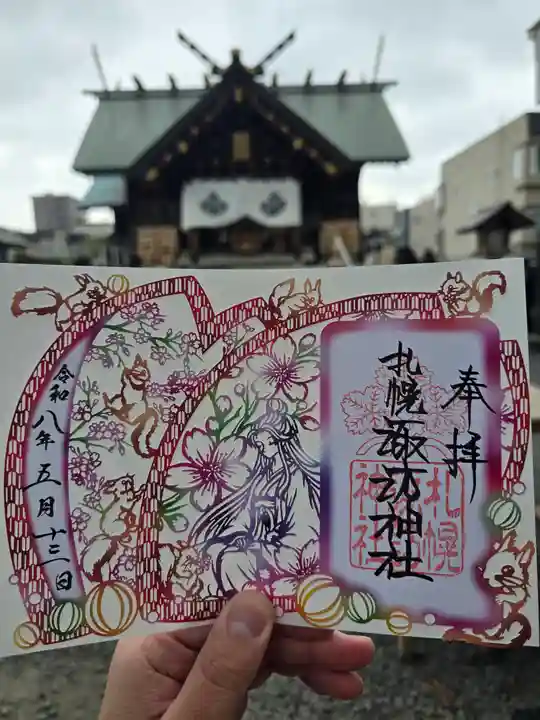 奉拝
札幌諏訪神社
札幌
神社
令和八年五月十三日